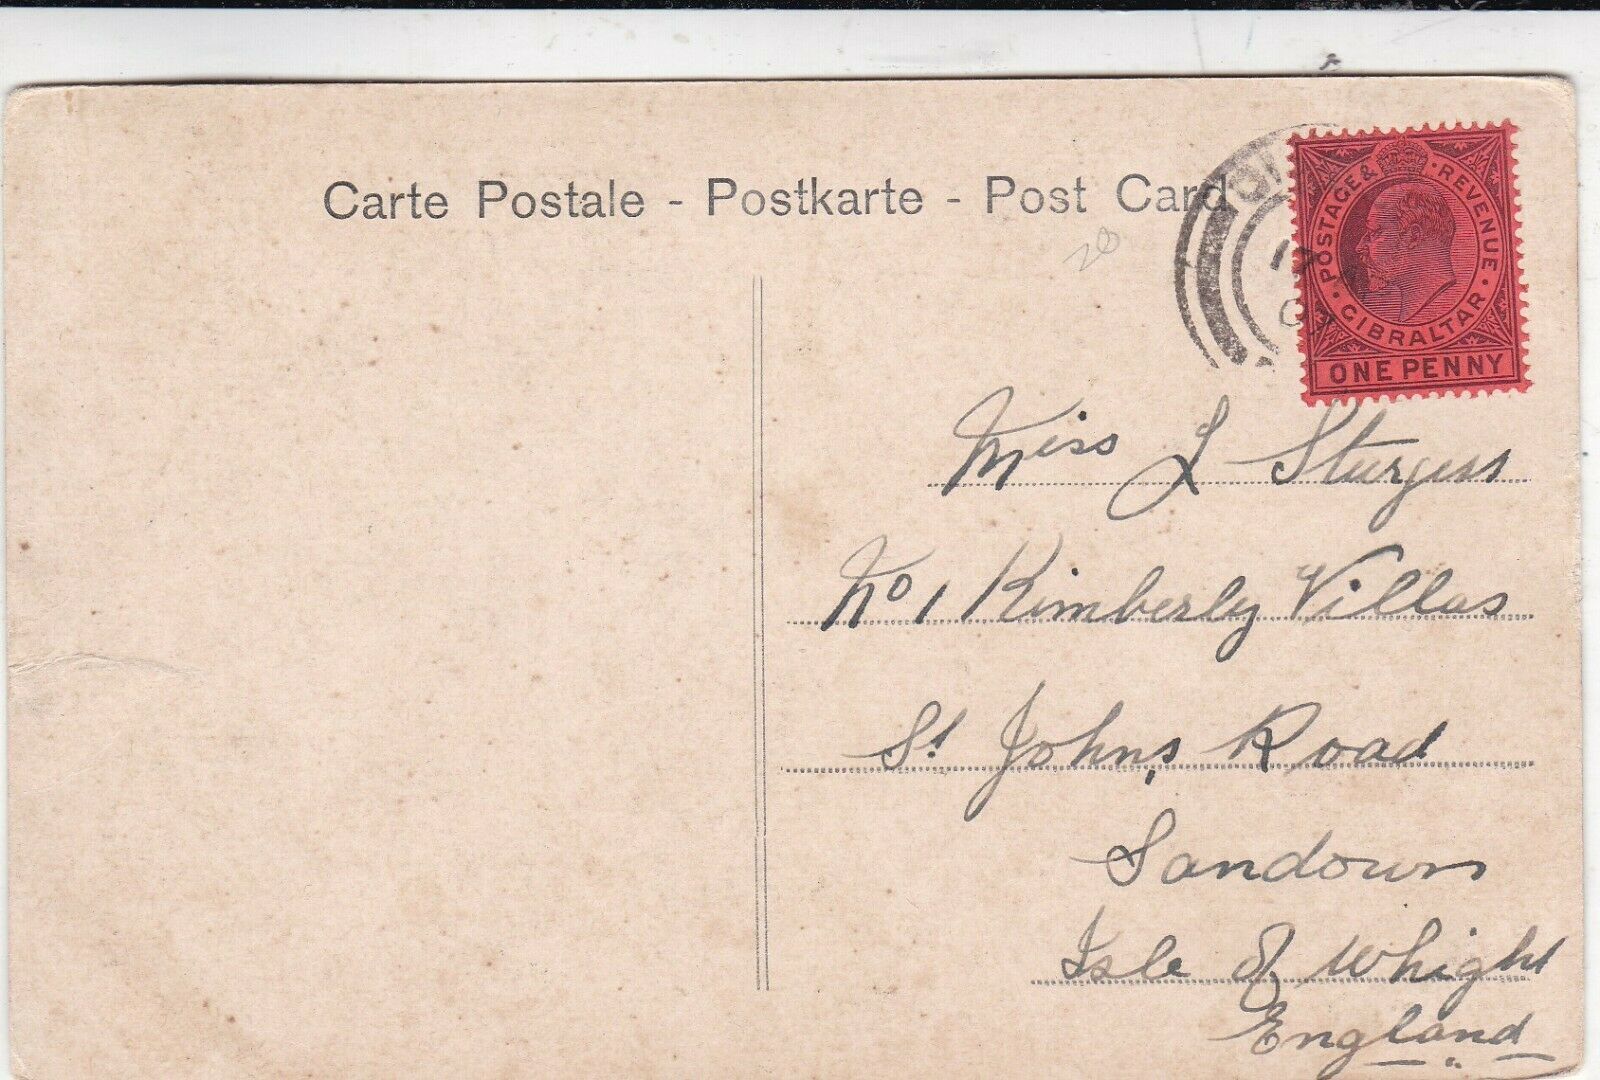 Carte Postale - Postkarte - Post Card
POSTAGE & REVENUE
GIBRALTAR
ONE PENNY
Miss L Sturgess
No 1 Kimberly Villas
St Johns Road
Sandown
Isle of Whight
England